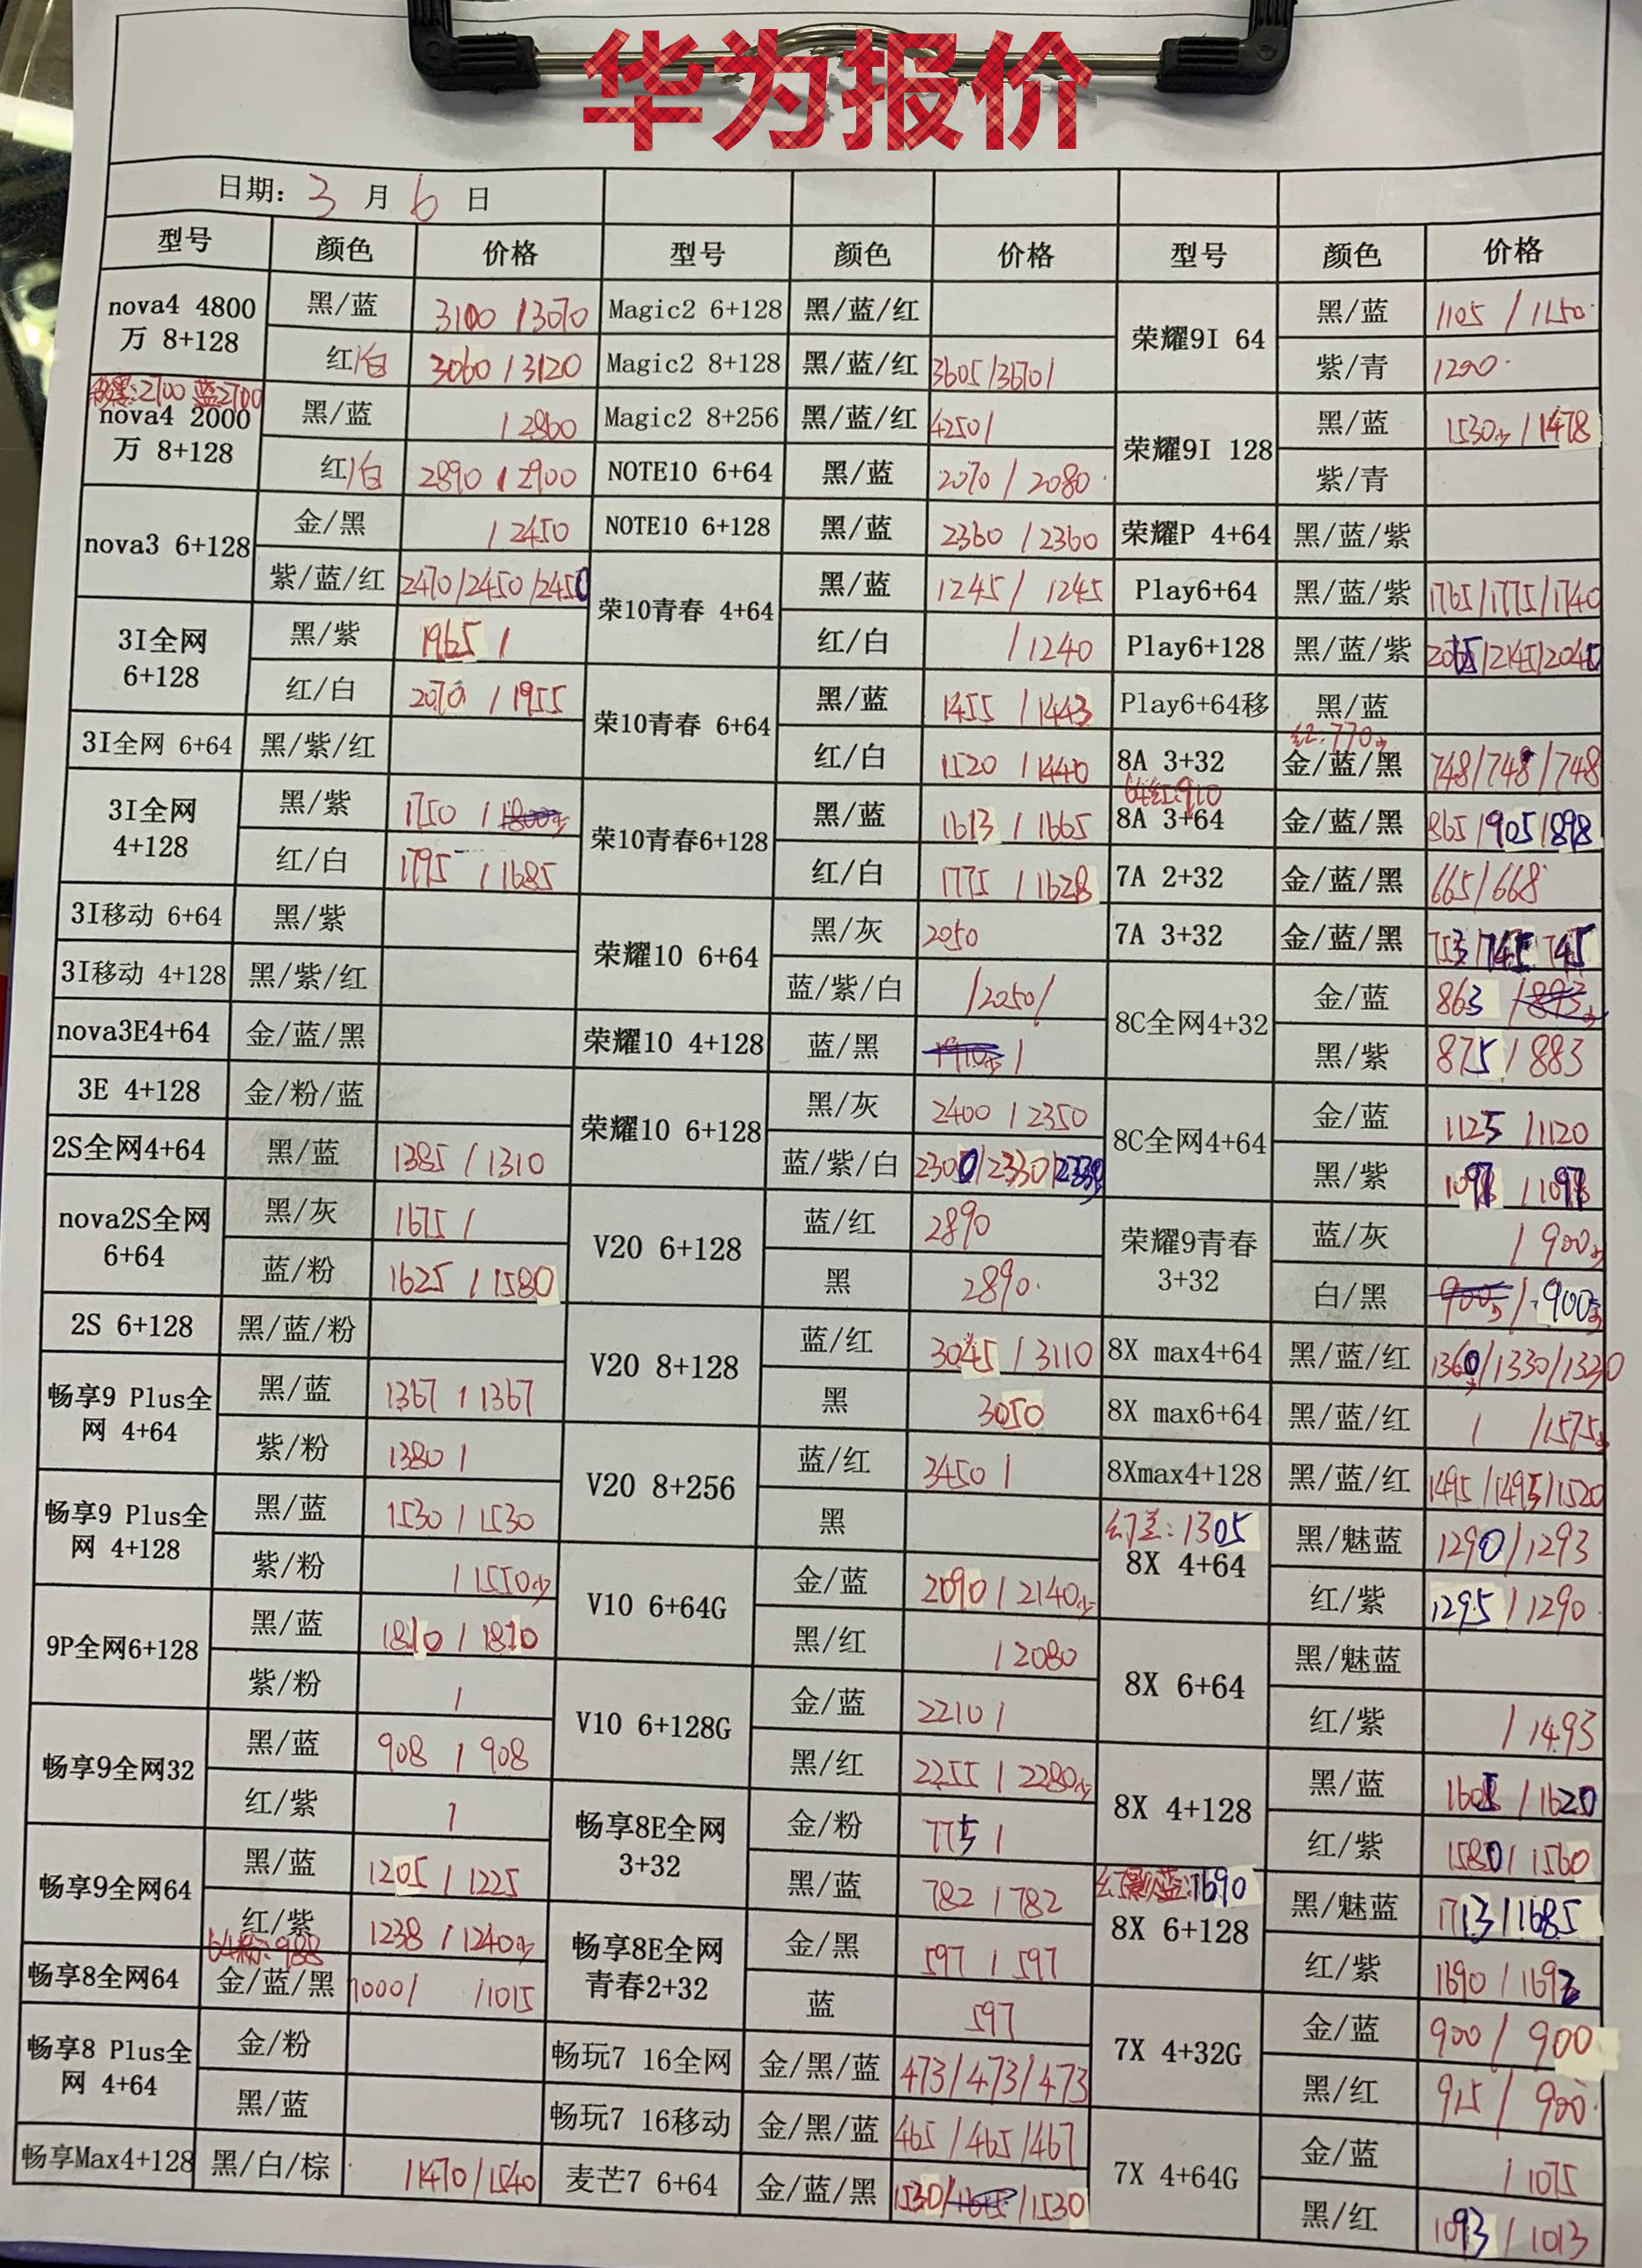 华为报价
日期: 3 月 6 日
型号 颜色 价格 型号 颜色 价格 型号 颜色 价格
nova4 4800万 8+128 黑/蓝 3100 / 3070
红/白 3060 / 3120
:2700 蓝2700
nova4 2000万 8+128 黑/蓝 / 2860
红/白 2890 / 2900
nova3 6+128 金/黑 / 2450
紫/蓝/红 2470/2450/2450
3I全网 6+128 黑/紫 1965 /
红/白 2070 / 1955
3I全网 6+64 黑/紫/红
3I全网 4+128 黑/紫 1750 /
红/白 1795 / 1685
3I移动 6+64 黑/紫
3I移动 4+128 黑/紫/红
nova3E4+64 金/蓝/黑
3E 4+128 金/粉/蓝
2S全网4+64 黑/蓝 1385 / 1310
nova2S全网 6+64 黑/灰 1675 /
蓝/粉 1625 / 1580
2S 6+128 黑/蓝/粉
畅享9 Plus全网 4+64 黑/蓝 1367 / 1367
紫/粉 1380 /
畅享9 Plus全网 4+128 黑/蓝 1530 / 1530
紫/粉 / 1550少
9P全网6+128 黑/蓝 1810 / 1810
紫/粉 /
畅享9全网32 黑/蓝 908 / 908
红/紫 /
畅享9全网64 黑/蓝 1205 / 1225
红/紫 1238 / 1240少
64粉:988
畅享8全网64 金/蓝/黑 1000/ /1015
畅享8 Plus全网 4+64 金/粉
黑/蓝
畅享Max4+128 黑/白/棕 /1470/1540
Magic2 6+128 黑/蓝/红
Magic2 8+128 黑/蓝/红 3605/3670/
Magic2 8+256 黑/蓝/红 4250/
NOTE10 6+64 黑/蓝 2070 / 2080
NOTE10 6+128 黑/蓝 2360 / 2360
荣10青春 4+64 黑/蓝 1245 / 1245
红/白 / 1240
荣10青春 6+64 黑/蓝 1455 / 1443
红/白 1520 / 1440
荣10青春6+128 黑/蓝 1613 / 1665
红/白 1775 / 1628
荣耀10 6+64 黑/灰 2050
蓝/紫/白 /2050/
荣耀10 4+128 蓝/黑 /
荣耀10 6+128 黑/灰 2400 / 2350
蓝/紫/白 2300/2330/
V20 6+128 蓝/红 2890
黑 2890
V20 8+128 蓝/红 3045 / 3110
黑 3050
V20 8+256 蓝/红 3450 /
黑
V10 6+64G 金/蓝 2090 / 2140少
黑/红 / 2080
V10 6+128G 金/蓝 2210 /
黑/红 2255 / 2280少
畅享8E全网 3+32 金/粉 775 /
黑/蓝 782 / 782
畅享8E全网青春2+32 金/黑 597 / 597
蓝 597
畅玩7 16全网 金/黑/蓝 473/473/473
畅玩7 16移动 金/黑/蓝 465/465/467
麦芒7 6+64 金/蓝/黑 1530/ /1530
荣耀9I 64 黑/蓝 1105 / 1150
紫/青 1200
荣耀9I 128 黑/蓝 1530少 / 1478
紫/青
荣耀P 4+64 黑/蓝/紫
Play6+64 黑/蓝/紫 1765/1775/1740
Play6+128 黑/蓝/紫 2065/2145/2040
Play6+64移 黑/蓝
红:770少
8A 3+32 金/蓝/黑 748/748/748
64红:910
8A 3+64 金/蓝/黑 865/905/898
7A 2+32 金/蓝/黑 665/668
7A 3+32 金/蓝/黑 753/745/745
8C全网4+32 金/蓝 863 /
黑/紫 875 / 883
8C全网4+64 金/蓝 1125 / 1120
黑/紫 1098 / 1098
荣耀9青春 3+32 蓝/灰 / 900少
白/黑 / 900少
8X max4+64 黑/蓝/红 1360/1330/1320
8X max6+64 黑/蓝/红 / /1575少
8Xmax4+128 黑/蓝/红 1495/1495/1520
幻兰:1305
8X 4+64 黑/魅蓝 1290/1293
红/紫 1295 / 1290
8X 6+64 黑/魅蓝
红/紫 / 1493
8X 4+128 黑/蓝 1605 / 1620
红/紫 1580 / 1560
1690
8X 6+128 黑/魅蓝 1713/1685
红/紫 1690 / 1692
7X 4+32G 金/蓝 900 / 900
黑/红 915 / 900
7X 4+64G 金/蓝 / 1075
黑/红 1093 / 1013